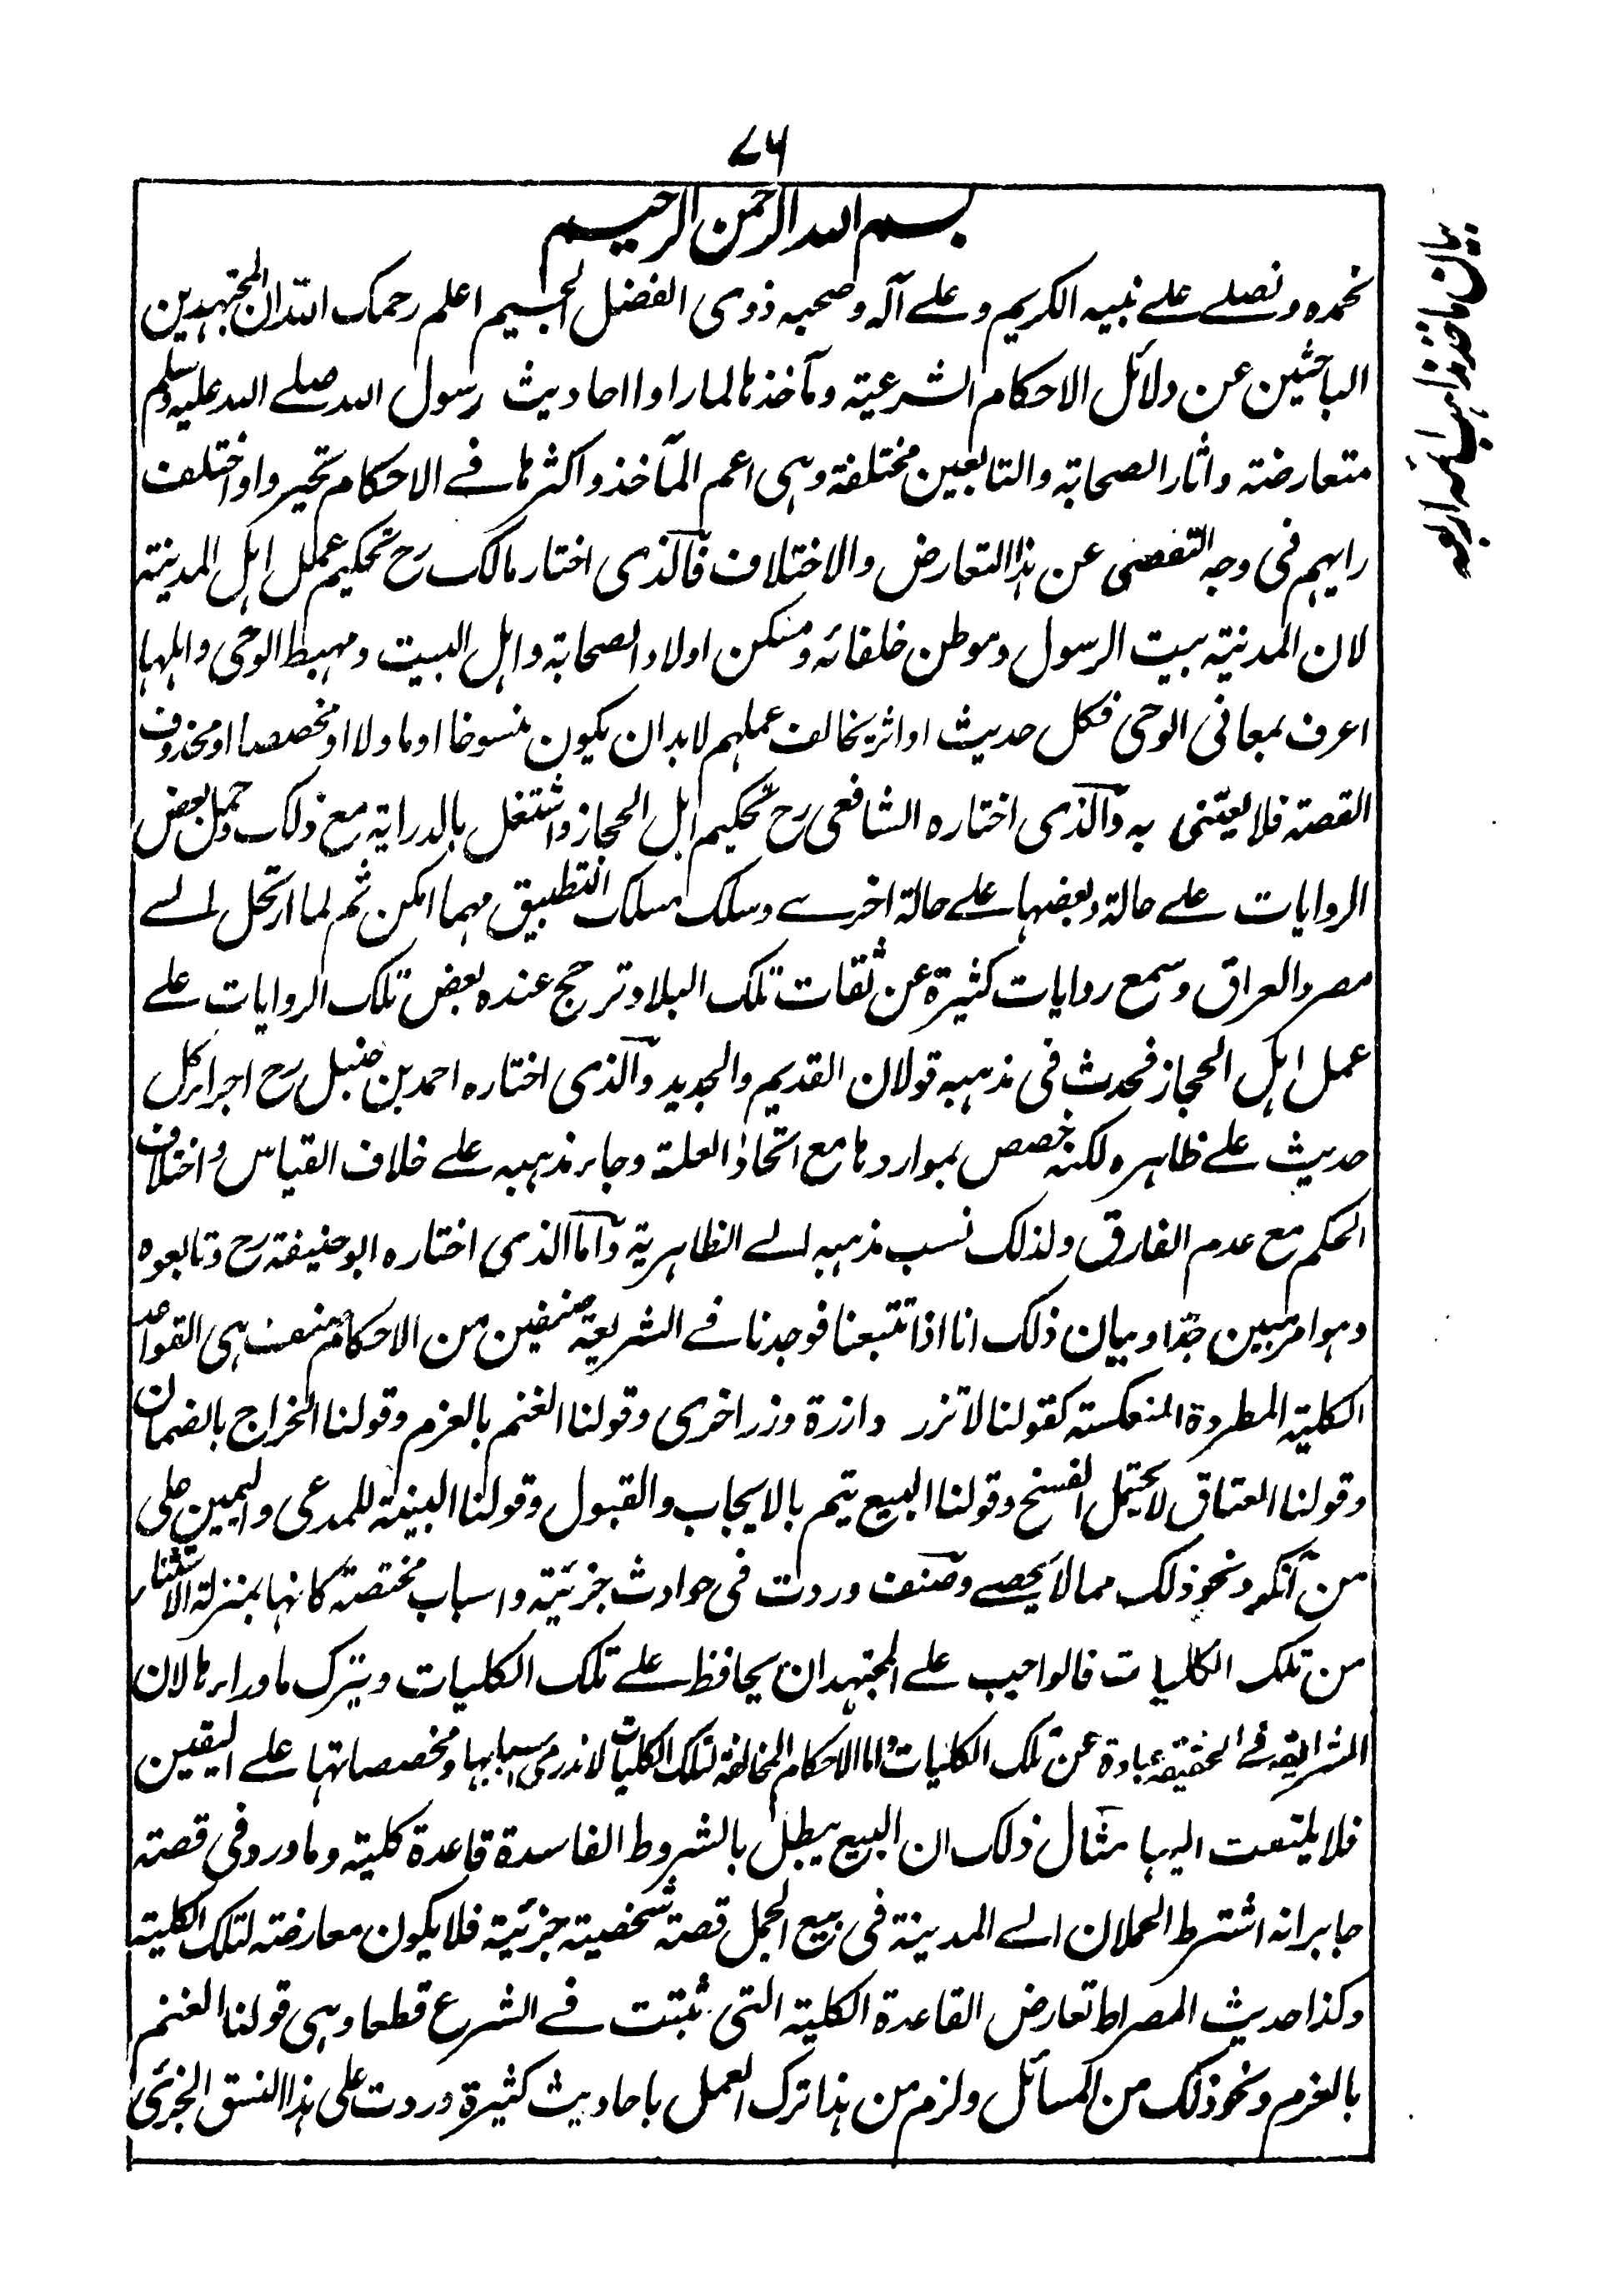 ٧٦
بسم الله الرحمن الرحيم
نحمده ونصلے علے نبيه الكريم وعلے آله وصحبه ذوى الفضل الجسيم اعلم رحمك الله ان المجتهدين
الباحثين عن دلائل الاحكام الشرعية ومآخذها لما راوا احاديث رسول الله صلے الله عليه وسلم
متعارضة واثار الصحابة والتابعين مختلفة وهى اعم المآخذ واكثرها فے الاحكام تحيروا واختلف
رايهم فى وجه التفصى عن هذا التعارض والاختلاف فآلذى اختار مالك رح تحكيم عمل اهل المدينة
لان المدينة بيت الرسول وموطن خلفائه ومسكن اولاد الصحابة واهل البيت ومهبط الوحى واهلها
اعرف بمعانى الوحى فكل حديث او اثر يخالف عملهم لابد ان يكون منسوخا او ماولا او مخصصا او محذوف
القصة فلا يعتنى به وآلذى اختاره الشافعى رح تحكيم اهل الحجاز واشتغل بالدراية مع ذلك وحمل بعض
الروايات علے حالة وبعضها علے حالة اخرے وسلك مسلك التطبيق مهما امكن ثم لما ارتحل الے
مصر والعراق وسمع روايات كثيرة عن ثقات تلك البلاد ترجح عنده بعض تلك الروايات علے
عمل اهل الحجاز فحدث فى مذهبه قولان القديم والجديد وآلذى اختاره احمد بن حنبل رح اجراء كل
حديث علے ظاهره لكنه خصص بمواردها مع اتحاد العلة وجاء مذهبه علے خلاف القياس واختلاف
الحكم مع عدم الفارق ولذلك نسب مذهبه الے الظاهرية وآما الذى اختاره ابو حنيفة رح وتابعوه
وهو امر مبين جدا وبيان ذلك انا اذا تتبعنا فوجدنا فے الشريعة صنفين من الاحكام صنف هى القواعد
الكلية المطردة المنعكسة كقولنا لا تزر وازرة وزر اخرى وقولنا الغنم بالغرم وقولنا الخراج بالضمان
وقولنا العتاق لا يحتمل الفسخ وقولنا البيع يتم بالايجاب والقبول وقولنا البينة للمدعى واليمين على
من آنكر ونحو ذلك مما لا يحصے وصنف وردت فى حوادث جزئية واسباب مختصة كانها بمنزلة الاستثناء
من تلك الكليات فالواجب علے المجتهد ان يحافظ علے تلك الكليات ويترك ما وراءها لان
الشرايع فے الحقيقة عبارة عن تلك الكليات واما الاحكام المخالفة لتلك الكليات لا ندرى اسبابها ومخصصاتها علے اليقين
فلا يلتفت اليها مثال ذلك ان البيع يبطل بالشروط الفاسدة قاعدة كلية وما ورد فى قصة
جابر انه اشترط الحملان الے المدينة فى بيع الجمل قصة شخصية جزئية فلا يكون معارضة لتلك الكلية
وكذا حديث المصراط تعارض القاعدة الكلية التى ثبتت فے الشرع قطعا وهى قولنا الغنم
بالغرم ونحو ذلك من المسائل ولزم من هذا ترك العمل باحاديث كثيرة وردت على هذا النسق الجزئى
بيان ماخذ مذاهب ائمه اربعه